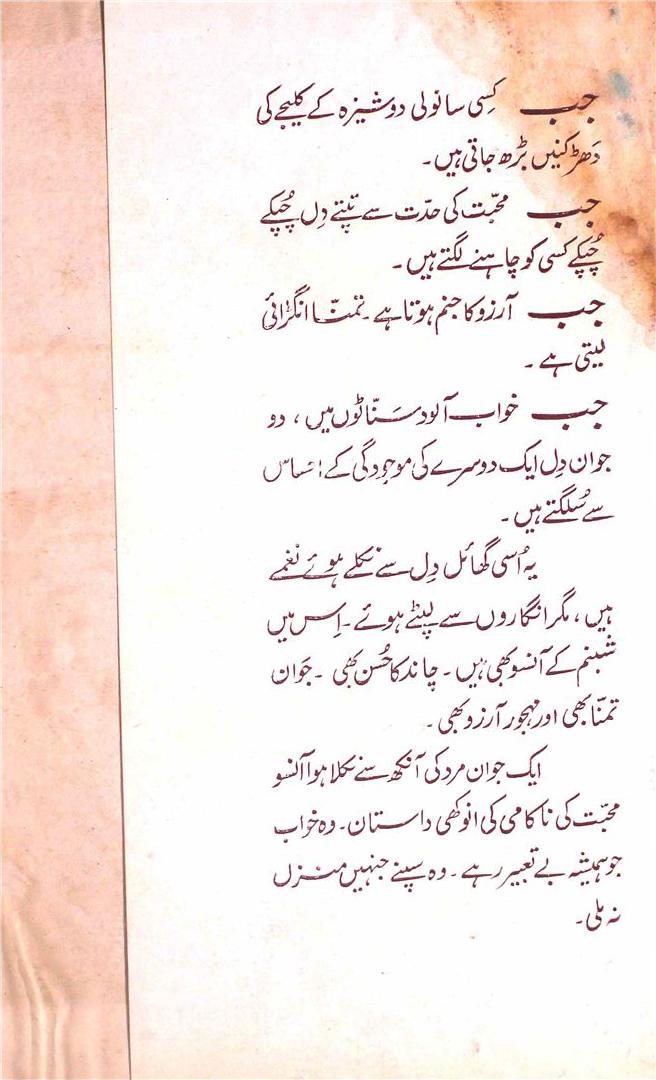 جب کِسی سانولی دوشیزہ کے کلیجے کی
دَھڑکنیں بڑھ جاتی ہیں۔
جب محبّت کی حدّت سے تپتے دِل چُپکے
چُپکے کسی کو چاہنے لگتے ہیں۔
جب آرزو کا جنم ہوتا ہے۔ تمنّا انگڑائی
لیتی ہے۔
جب خواب آلود سَنّاٹوں میں، دو
جوان دِل ایک دوسرے کی موجودگی کے احساس
سے سُلگتے ہیں۔
یہ اُسی گھائل دِل سے نکلے ہوئے نغمے
ہیں، مگر انگاروں سے لپٹے ہوئے۔ اِس میں
شبنم کے آنسو بھی ہیں۔ چاند کا حُسن بھی۔ جَوان
تمنّا بھی اور مہجور آرزو بھی۔
ایک جوان مرد کی آنکھ سے نکلا ہوا آنسو
محبّت کی ناکامی کی انوکھی داستان۔ وہ خواب
جو ہمیشہ بے تعبیر رہے۔ وہ سپنے جنہیں منزل
نہ ملی۔